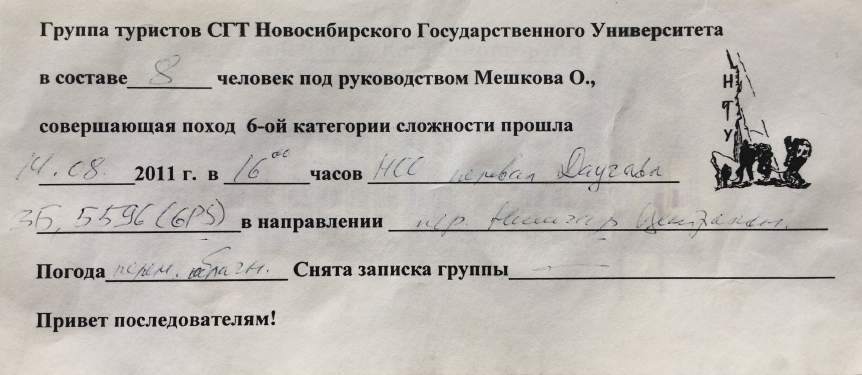 Группа туристов СГТ Новосибирского Государственного Университета
в составе 8 человек под руководством Мешкова О.,
совершающая поход 6-ой категории сложности прошла
14.08. 2011 г. в 16⁰⁰ часов перевал Даугава
3Б, 5596 (GPS) в направлении пер.
Погода перем. облачн. Снята записка группы —
Привет последователям!
НТУ